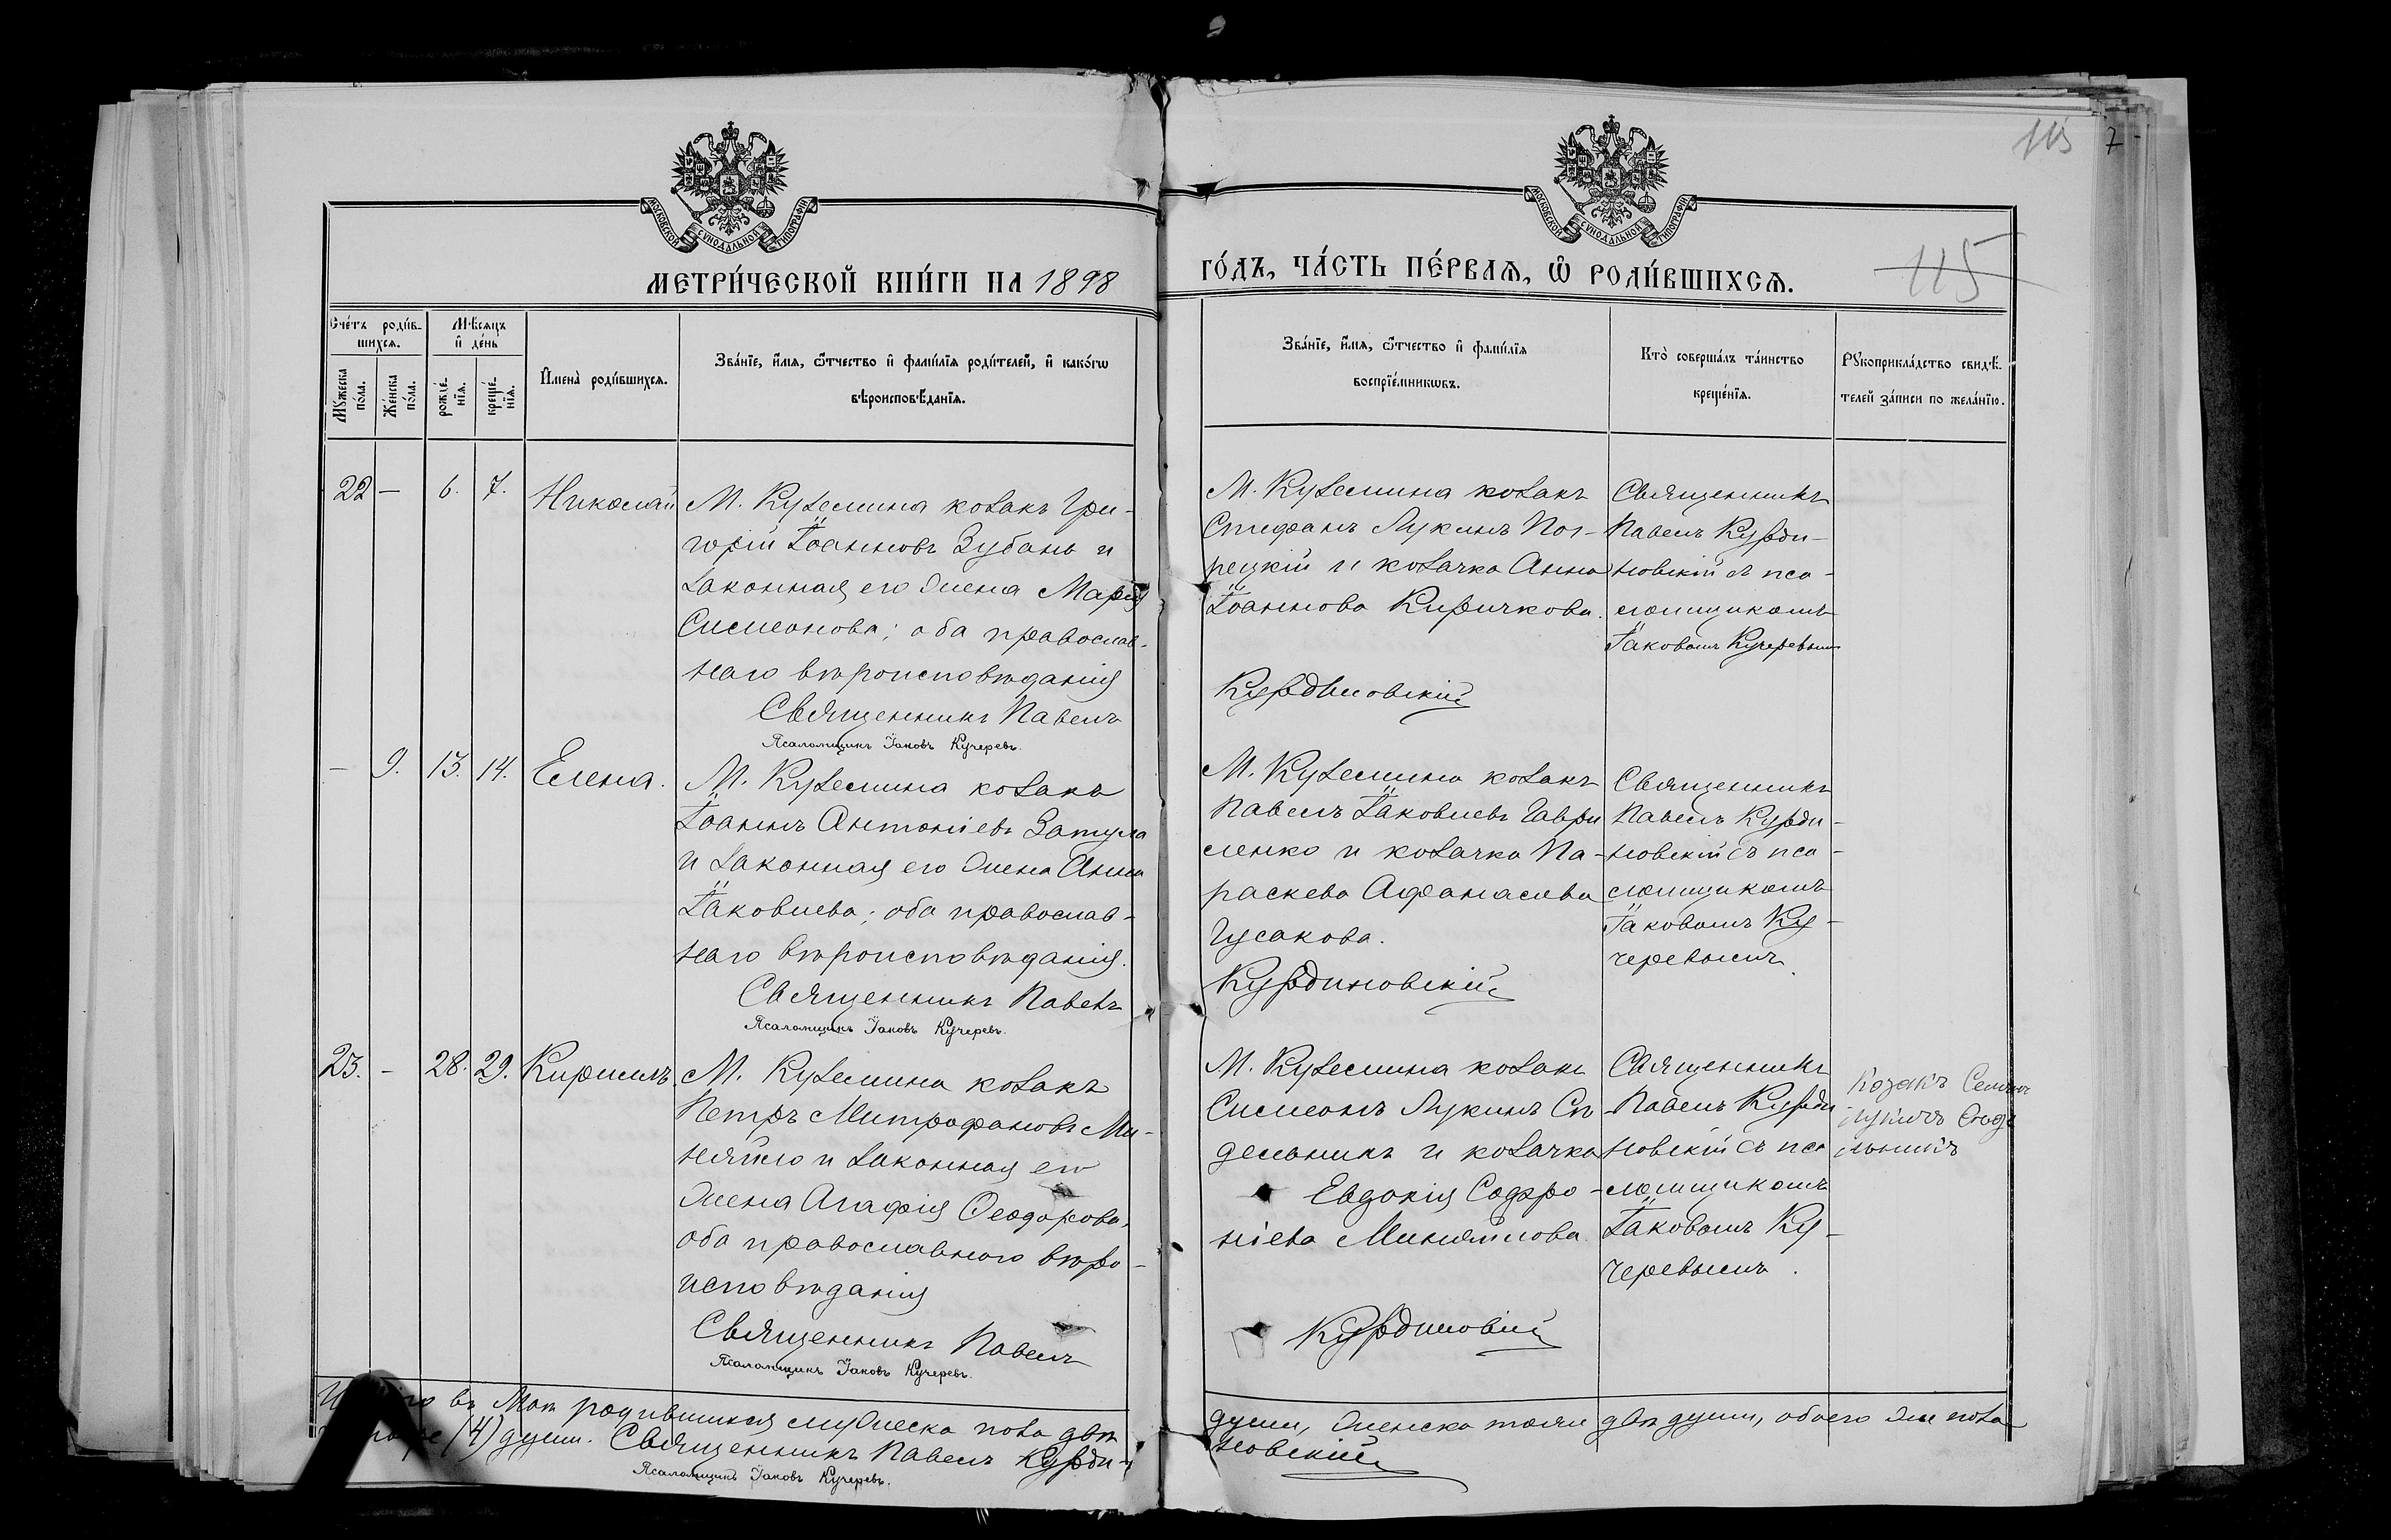 115 7
МОСКОВСКОЙ СѴНОДАЛЬНОЙ ТИПОГРАФІИ
МОСКОВСКОЙ СѴНОДАЛЬНОЙ ТИПОГРАФІИ
МЕТРИ́ЧЕСКОЙ КНИ́ГИ НА 1898
ГО́ДЪ, ЧА́СТЬ ПЕ́РВАѦ, Ѡ҆ РОДИ́ВШИХСѦ.
115
Сче́тъ роди́в-
шихсѧ.
Мѣ́сѧцъ
и҆ де́нь
Мꙋ́жеска
по́ла.
Же́нска
по́ла.
рожде́-
нїѧ.
креще́-
нїѧ.
И҆мена̀ роди́вшихсѧ.
Зва́нїе, и҆́мѧ, ѻ҆́тчество и҆ фами́лїѧ роди́телей, и҆ како́гѡ
вѣроисповѣ́данїѧ.
Зва́нїе, и҆́мѧ, ѻ҆́тчество и҆ фами́лїѧ
воспрїе́мникѡвъ.
Кто̀ соверша́лъ та́инство
креще́нїѧ.
Рꙋкоприкла́дство свидѣ́-
телей за́писи по жела́нїю.
22 — 6. 7. Николай
М. Куземина козакъ Гри-
горій Іоанновъ Зубань и
законная его жена Марія
Симеонова; оба православ-
наго вѣроисповѣданія
Священникъ Павелъ
Псаломщикъ Іаковъ Кучеревъ.
М. Куземина козакъ
Стефанъ Лукинъ
и козачка Анна
Іоаннова Киричкова.
Курдиновскій
Священникъ
Павелъ Курди-
новскій съ пса-
ломщикомъ
Іаковомъ Кучеревымъ
— 9. 13. 14. Елена.
М. Куземина козакъ
Іоаннъ Антоніевъ Затула
и законная его жена Анна
Іаковлева; оба православ-
наго вѣроисповѣданія.
Священникъ Павелъ
Псаломщикъ Іаковъ Кучеревъ.
М. Куземина козакъ
Павелъ Іаковлевъ Гаври
ленко и козачка Па-
раскева Афанасиева
Гусакова.
Курдиновскій
Священникъ
Павелъ Курди-
новскій съ пса-
ломщикомъ
Іаковомъ Ку-
черевымъ
23. — 28. 29. Кириллъ.
М. Куземина козакъ
Петръ Митрофановъ Ми-
няйло и законная его
жена Агафія Ѳеодорова,
оба православнаго вѣро-
исповѣданія
Священникъ Павелъ
Псаломщикъ Іаковъ Кучеревъ.
М. Куземина козакъ
Симеонъ Лукинъ Сѣ
дельникъ и козачка
Евдокія Софро-
ніева Миняйлова.
Курдиновскій
Священникъ
Павелъ Курди
новскій съ пса
ломщикомъ
Іаковомъ Ку-
черевымъ.
Козакъ Семенъ
Лукичъ
въ Маѣ родившихся мужеска пола двѣ
души, женска тожъ двѣ души, обоего же пола
(4) души. Священникъ Павелъ Курди-
новскій
Псаломщикъ Іаковъ Кучеревъ.